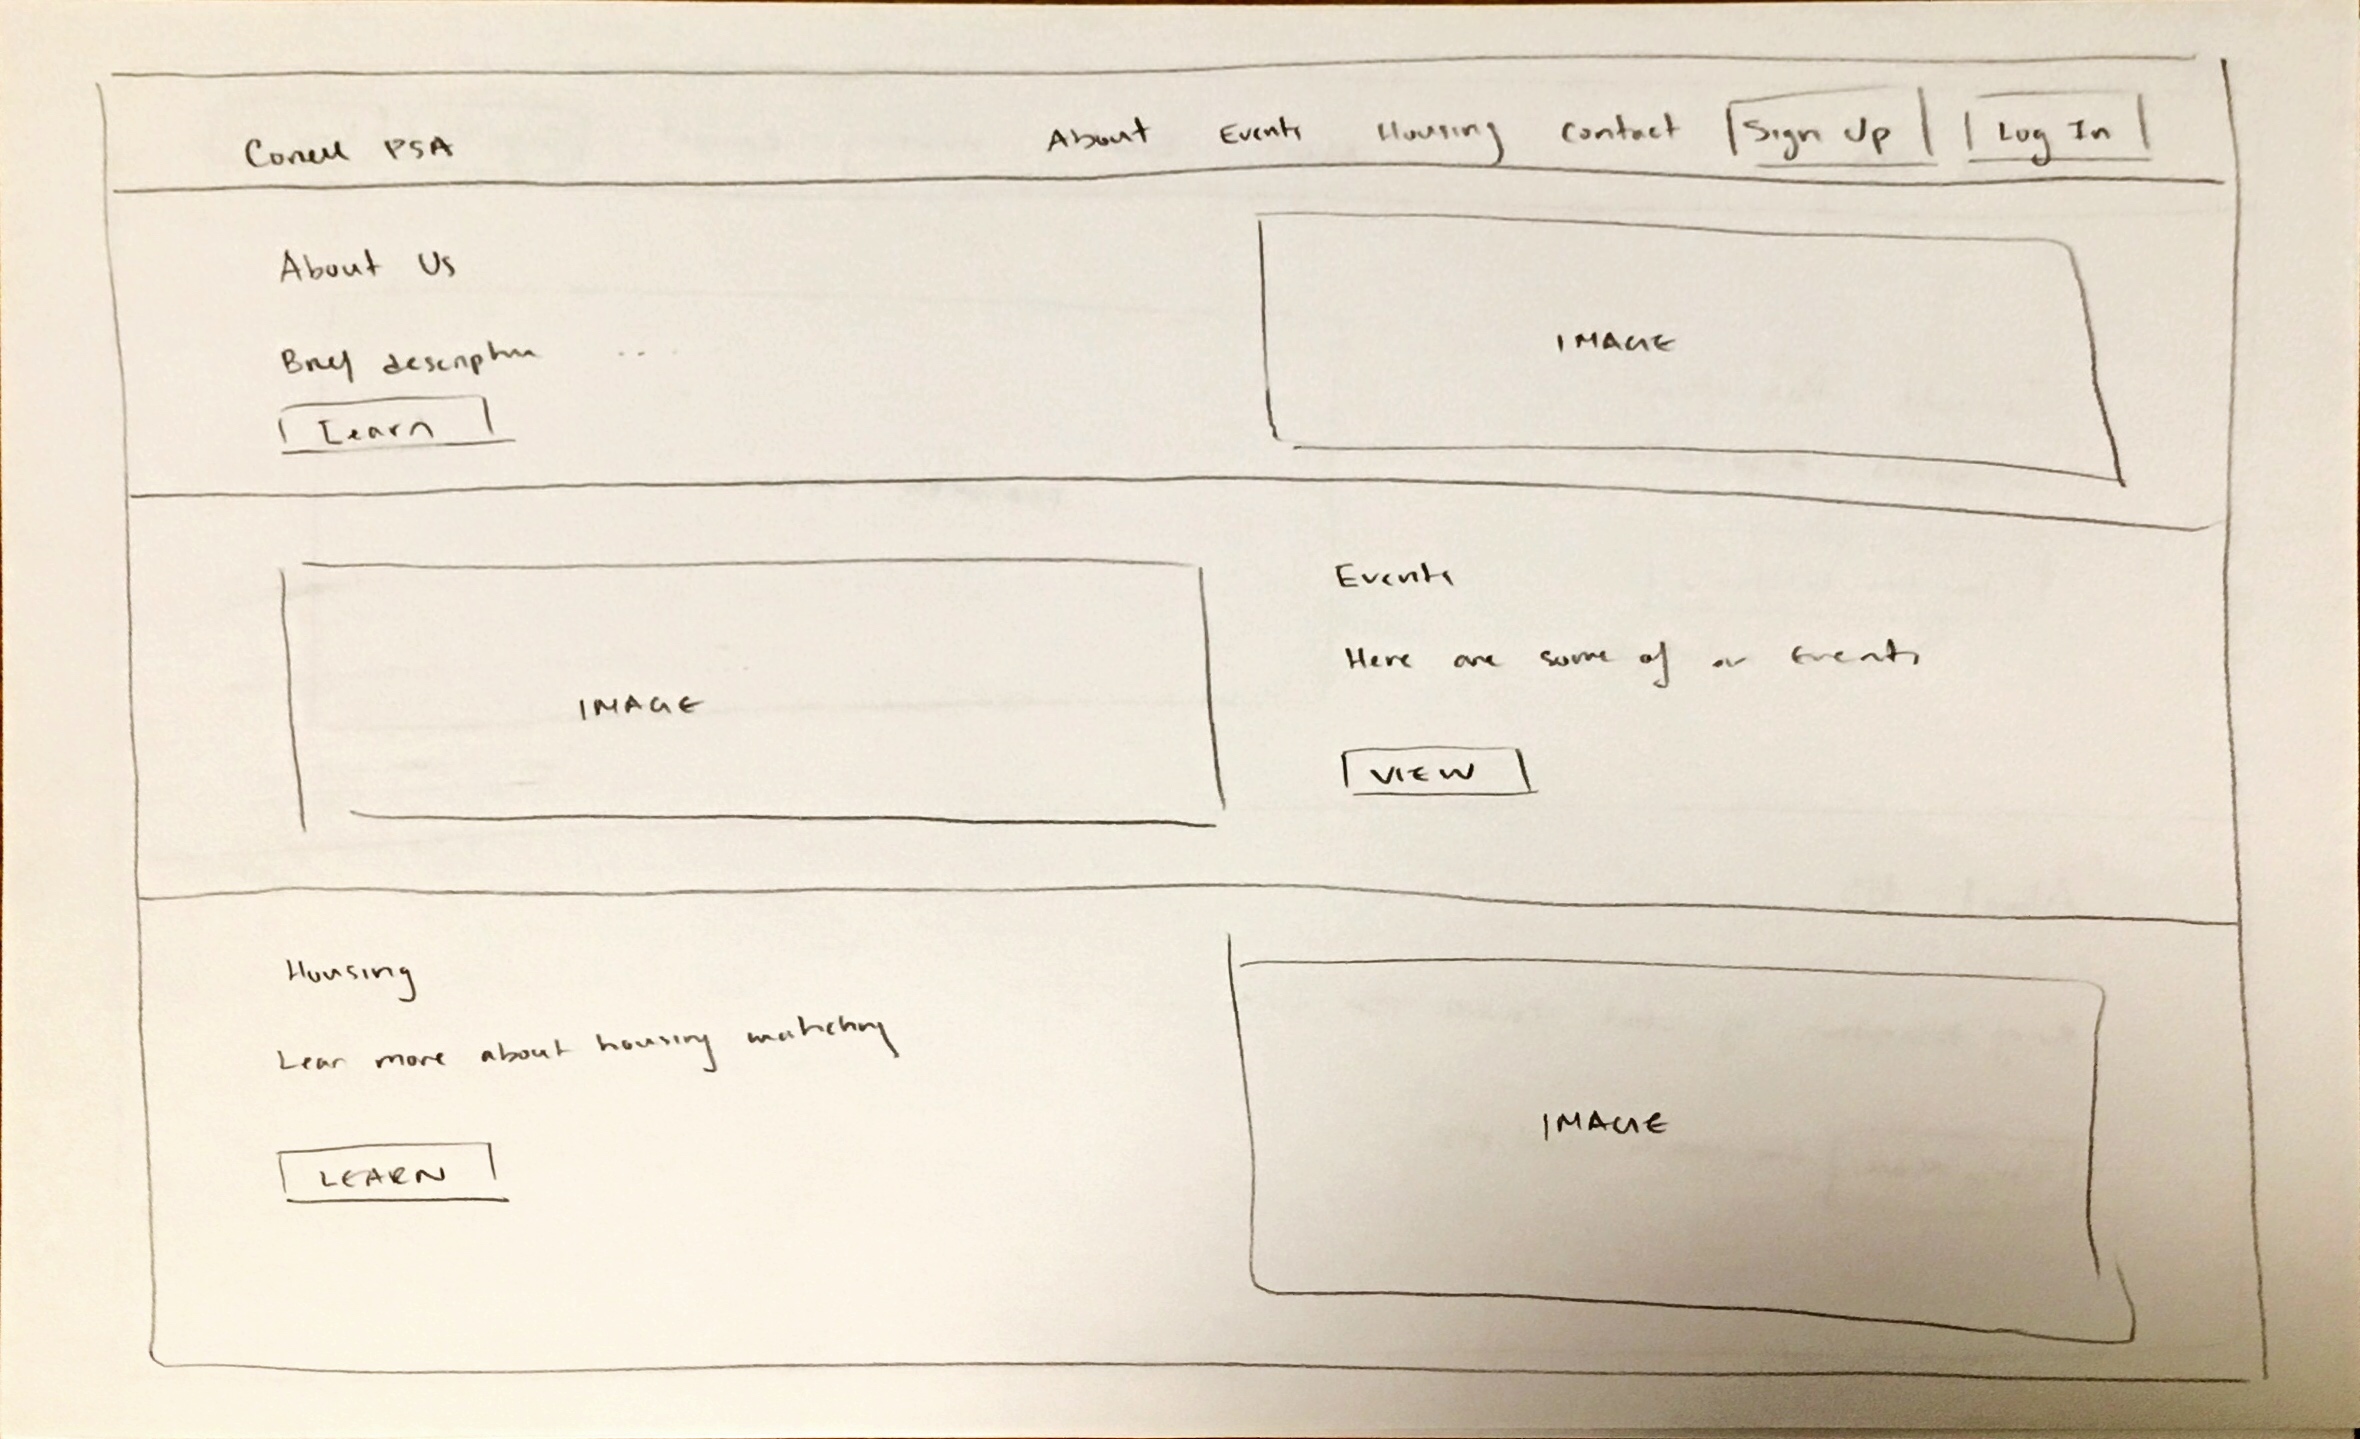 Cornell PSA About Events Housing Contact Sign Up Log In
About Us
IMAGE
Brief description ...
Learn
Events
Here are some of our Events
IMAGE
VIEW
Housing
Learn more about housing matching
IMAGE
LEARN